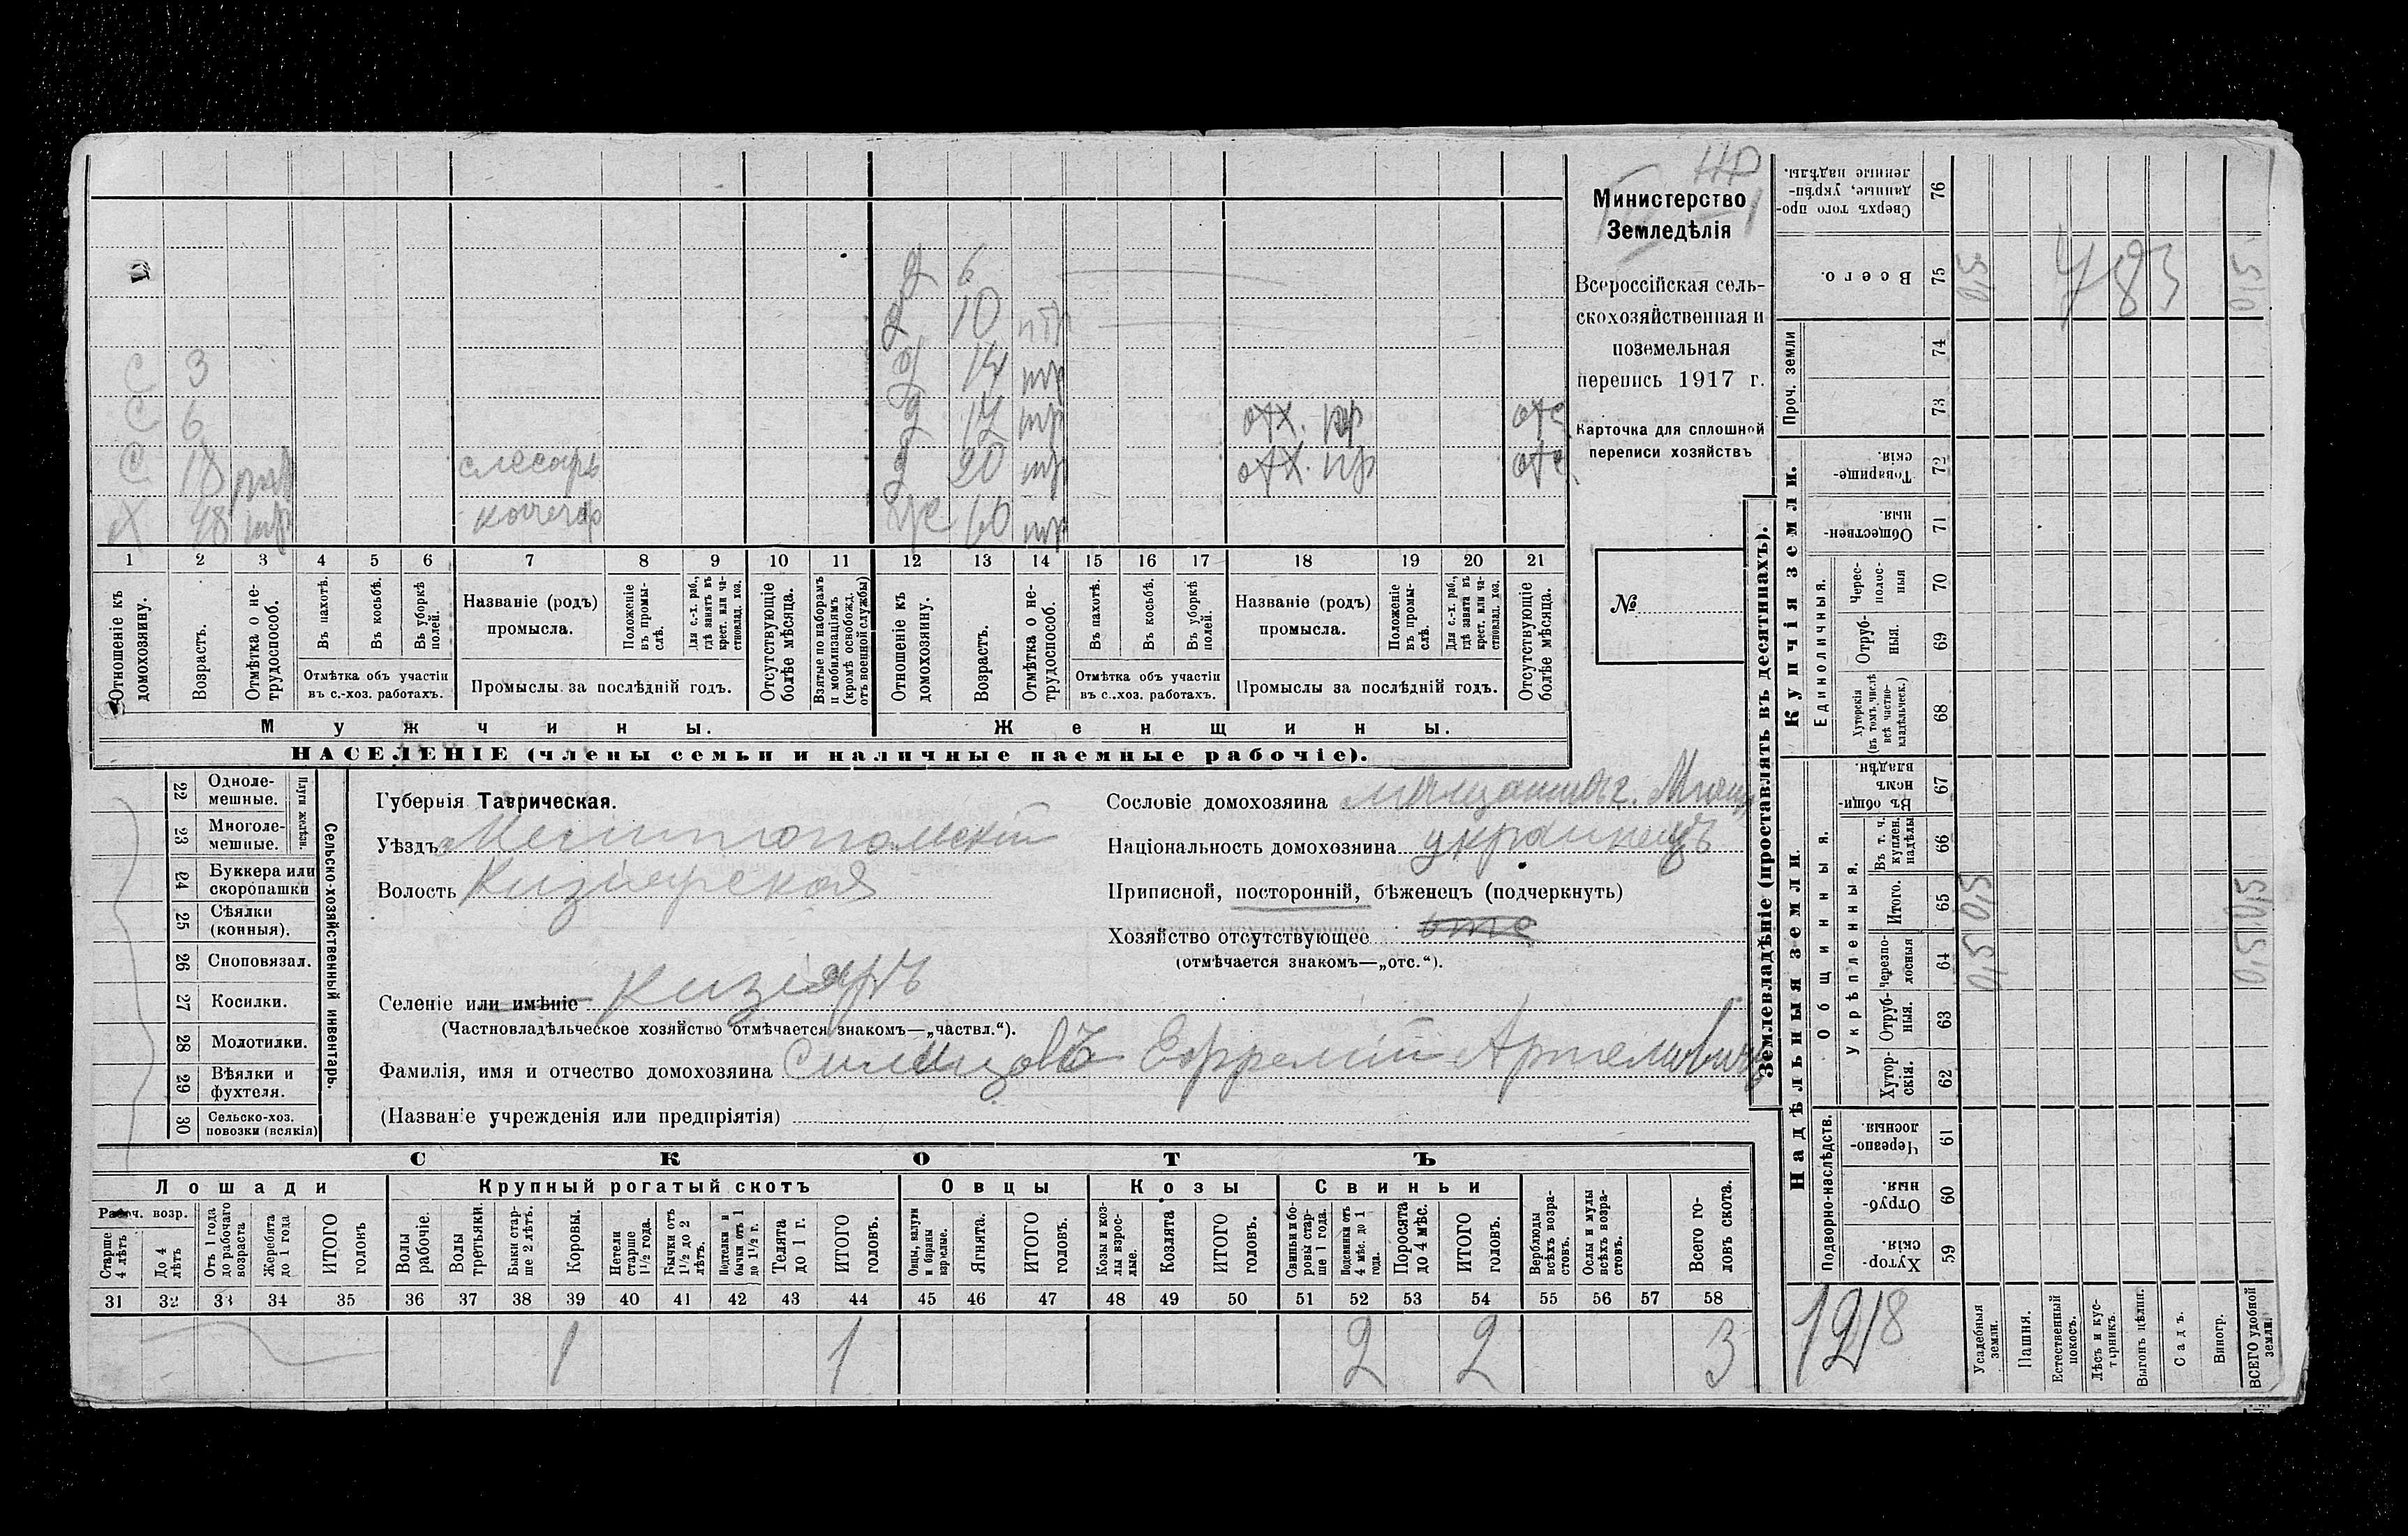 Министерство
Земледѣлія
Всероссійская сель-
скохозяйственная и
поземельная
перепись 1917 г.
Карточка для сплошной
переписи хозяйствъ
№
д 6
д 10
С 3 д 14
С 6 д 17 отх. отс
С 18 слесарь д 20 отх. отс
Х 48 кочегар 60
1 2 3 4 5 6 7 8 9 10 11 12 13 14 15 16 17 18 19 20 21
Отношеніе къ домохозяину.
Возрастъ.
Отмѣтка о не-трудоспособ.
Въ пахотѣ.
Въ косьбѣ.
Въ уборкѣ полей.
Отмѣтка объ участіи
въ с.-хоз. работахъ.
Названіе (родъ)
промысла.
Положеніе въ промы-слѣ.
Для с.-х. раб., гдѣ занятъ въ крест. или ча-стновлад. хоз.
Промыслы за послѣдній годъ.
Отсутствующіе болѣе мѣсяца.
Взятые по наборамъ и мобилизаціямъ (кромѣ освобожд. отъ военной службы)
Отношеніе къ домохозяину.
Возрастъ.
Отмѣтка о не-трудоспособ.
Въ пахотѣ.
Въ косьбѣ.
Въ уборкѣ полей.
Отмѣтка объ участіи
въ с.-хоз. работахъ.
Названіе (родъ)
промысла.
Положеніе въ промы-слѣ.
Для с.-х. раб., гдѣ занята въ крест. или ча-стновлад. хоз.
Промыслы за послѣдній годъ.
Отсутствующіе болѣе мѣсяца.
Мужчины.
Женщины.
НАСЕЛЕНІЕ (члены семьи и наличные наемные рабочіе).
22 Одноле-мешные.
23 Многоле-мешные.
Плуги желѣзн.
24 Буккера или скоропашки
25 Сѣялки (конныя).
26 Сноповязал.
27 Косилки.
28 Молотилки.
29 Вѣялки и фухтеля.
30 Сельско-хоз. повозки (всякія)
Сельско-хозяйственный инвентарь.
Губернія Таврическая.
Уѣздъ Мелитопольскій
Волость Кизіярская
Селеніе или имѣніе Кизіяръ
(Частновладѣльческое хозяйство отмѣчается знакомъ—„частвл.“).
Сословіе домохозяина
Національность домохозяина украинецъ
Приписной, посторонній, бѣженецъ (подчеркнуть)
Хозяйство отсутствующее отс
(отмѣчается знакомъ—„отс.“).
Фамилія, имя и отчество домохозяина Ефремій Артемовичъ
(Названіе учрежденія или предпріятія)
СКОТЪ
Лошади
Крупный рогатый скотъ
Овцы
Козы
Свиньи
Рабоч. возр.
Старше 4 лѣтъ
До 4 лѣтъ
Отъ 1 года до рабочаго возраста
Жеребята до 1 года
ИТОГО головъ
Волы рабочіе.
Волы третьяки.
Быки стар-ше 2 лѣтъ.
Коровы.
Нетели старше 1½ года.
Бычки отъ 1½ до 2 лѣтъ.
Подтелки и бычки отъ 1 до 1½ г.
Телята до 1 г.
ИТОГО головъ.
Овцы, валухи и бараны взрослые.
Ягнята.
ИТОГО головъ.
Козы и коз-лы взрос-лые.
Козлята
ИТОГО головъ.
Свиньи и бо-ровы стар-ше 1 года.
Подсвинки отъ 4 мѣс. до 1 года.
Поросята до 4 мѣс.
ИТОГО головъ.
Верблюды всѣхъ возра-стовъ.
Ослы и мулы всѣхъ возра-стовъ.
Всего го-ловъ скота.
31 32 33 34 35 36 37 38 39 40 41 42 43 44 45 46 47 48 49 50 51 52 53 54 55 56 57 58
1 1 2 2 3
Землевладѣніе (проставлять въ десятинахъ).
Надѣльныя земли.
Купчія земли.
Проч. земли
Подворно-наслѣдств.
Общинныя.
Укрѣпленныя.
Единоличныя.
Сверхъ того про-данные, укрѣп-ленные надѣлы. 76
Всего. 75
74
73
Товарище-скія. 72
Обществен-ныя. 71
Черес-полос-ныя 70
Отруб-ныя. 69
Хуторскія (въ томъ числѣ всѣ частно-владѣльческ.) 68
Въ общин-номъ владѣн. 67
Въ т. ч. куплен. надѣлы 66
Итого. 65
Черезпо-лосныя 64
Отруб-ныя. 63
Хутор-скія. 62
Черезпо-лосныя 61
Отруб-ныя. 60
Хутор-скія. 59
Усадебныя земли.
Пашня.
Естественный покосъ.
Лѣсъ и кус-тарникъ.
Выгонъ цѣлин.
Садъ.
Виногр.
ВСЕГО удобной земли.
0,5 0,5
0,5 0,5 0,5 0,5
783
1218